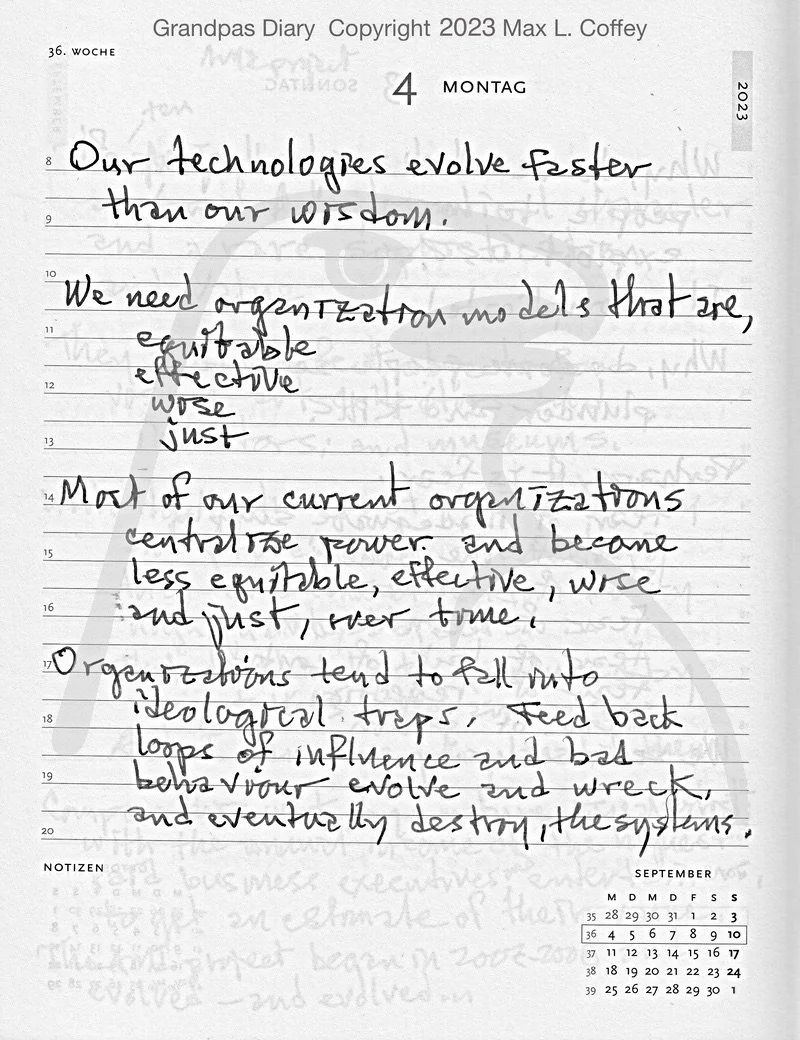 Grandpas Diary Copyright 2023 Max L. Coffey
36. WOCHE
4 MONTAG
2023
8 Our technologies evolve faster
than our wisdom.
9
10 We need organization models that are,
11 equitable
effective
12 wise
just
13
14 Most of our current organizations
centralize power. and become
15 less equitable, effective, wise
16 and just, over time.
17 Organizations tend to fall into
ideological traps. Feed back
18 loops of influence and bad
19 behaviour evolve and wreck,
and eventually destroy, the systems.
20
NOTIZEN
SEPTEMBER
M D M D F S S
35 28 29 30 31 1 2 3
36 4 5 6 7 8 9 10
37 11 12 13 14 15 16 17
38 18 19 20 21 22 23 24
39 25 26 27 28 29 30 1